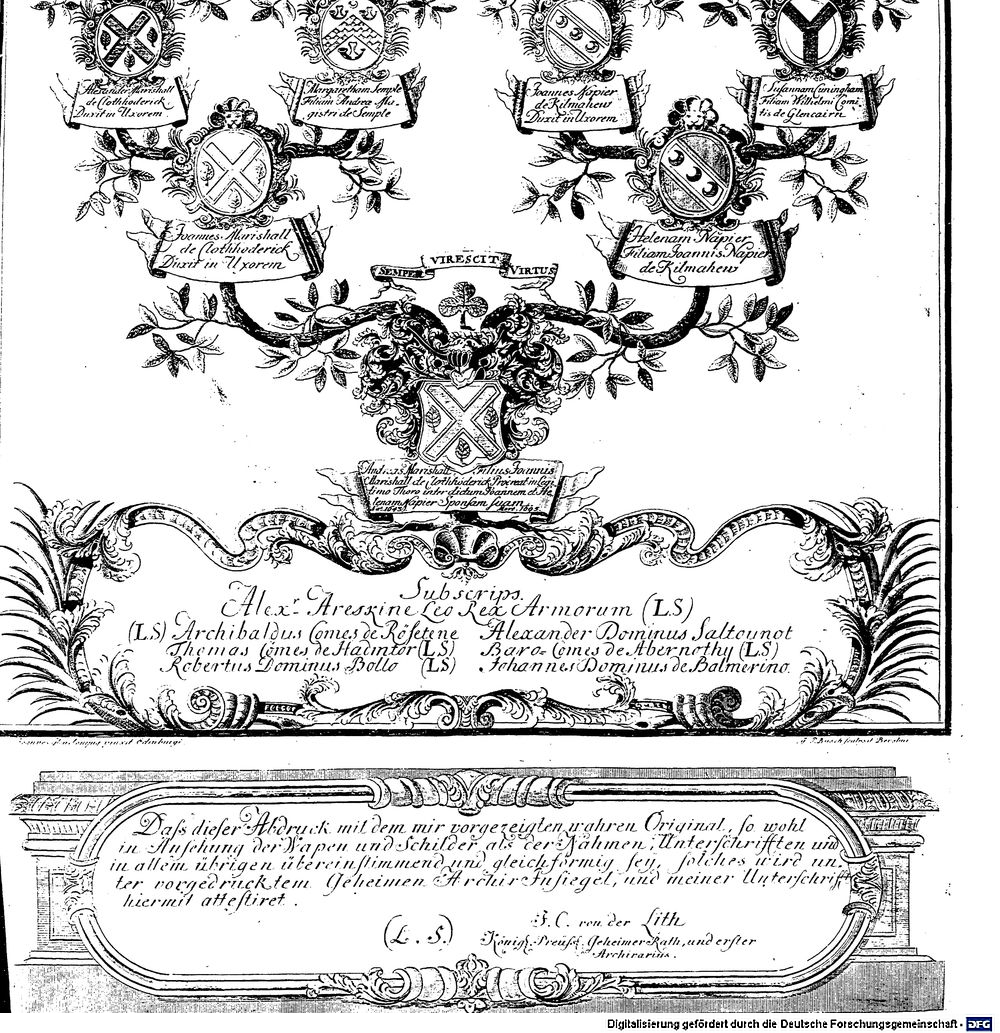 Alexander Marishall
de Clothhoderick
Duxit in Uxorem
Margaretham Semple
Filiam Andreæ Ma-
gistri de Semple
Joannes Napier
de Kilmahew
Duxit in Uxorem
Susannam Cuningham
Filiam Willielmi Comi
tis de Glencairn
Joannes Marishall
de Clothhoderick
Duxit in Uxorem
Helenam Napier
Filiam Joannis Napier
de Kilmahew
SEMPER VIRESCIT VIRTUS
Andreas Marishall Filius Joannis
Marishall de Clothhoderick Procreat in Legi
timo Thoro inter dictum Joannem et He
lenam Napier Sponsam suam
Subscrips.
Alexr. Areskine Leo Rex Armorum (LS)
(LS) Archibaldus Comes de Rösetene Alexander Dominus Saltounot
Thomas Comes de Hadintor (LS) Baro-Comes de Abernothy (LS)
Robertus Dominus Bollo (LS) Johannes Dominus de Balmerino.
pinxit Edinburgi
Busch sculpsit Berolini
Daß dieser Abdruck mit dem mir vorgezeigten wahren Original, so wohl
in Ansehung der Wapen und Schilder als der Nahmen, Unterschrifften und
in allem übrigen übereinstimmend und gleichförmig sey, solches wird un-
ter vorgedrucktem Geheimen Archiv Insiegel, und meiner Unterschrifft
hiermit attestiret.
(L. S.)
J. C. von der Lith
Königl. Preuß. Geheimer Rath, und erster
Archivarius.
Digitalisierung gefördert durch die Deutsche Forschungsgemeinschaft - DFG